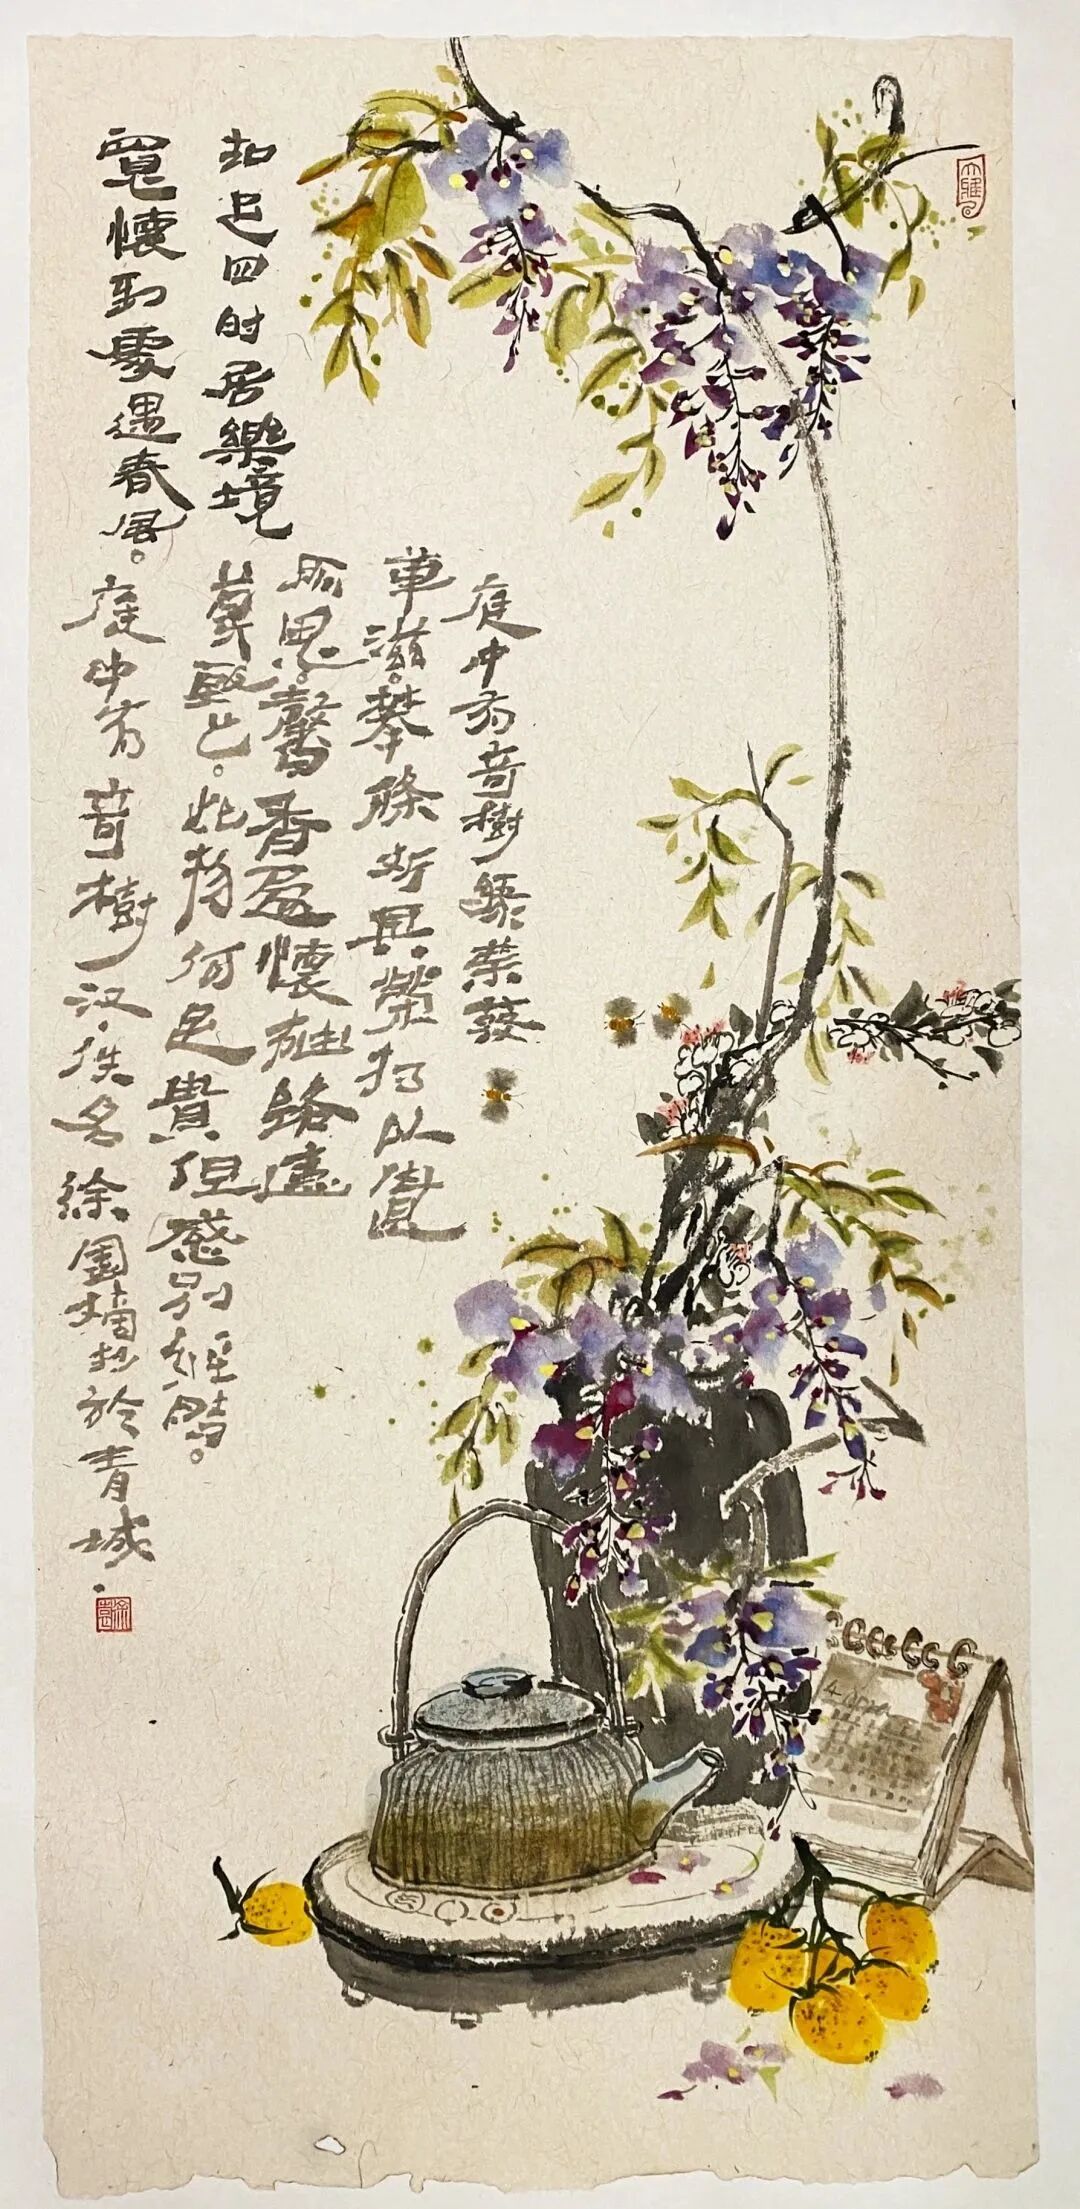 知足四时居樂境
寬懷到處遇春風。
庭中有奇樹綠葉發
華滋。攀條折其榮將以遺
所思。馨香盈懷袖路遠
莫致之。此物何足貴但感別經時。
庭中有奇樹汉·佚名徐園摘抄於青城.